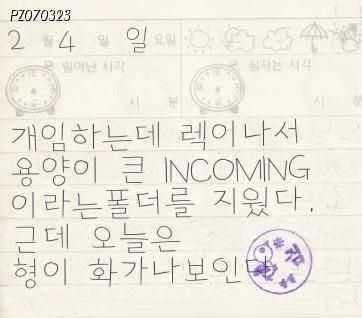 PZ070323
2 월 4 일 일 요일
일어난 시각 잠자는 시각
시 분 시 분
개임하는데 렉이나서
용양이 큰 INCOMING
이라는폴더를 지웠다.
근데 오늘은
형이 화가나보인다